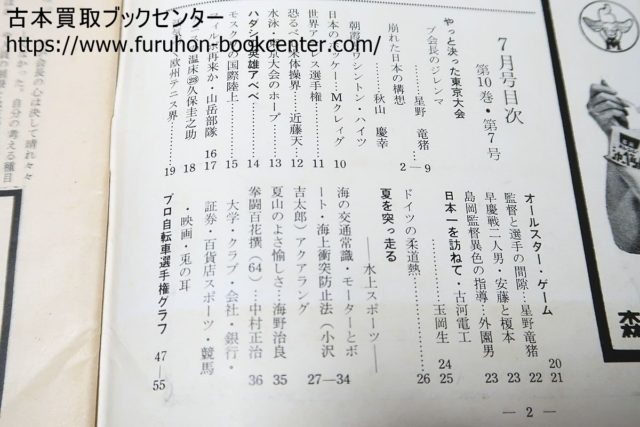 古本買取ブックセンター
https://www.furuhon-bookcenter.com/
7月号目次
第10巻・第7号
やっと決った東京大会
プ会長のジレンマ
星野 竜猪
崩れた日本の構想
秋山 慶幸
2―9
朝霞・ワシントン・ハイツ
日本のホッケー…Mクレイグ 10
世界アドレス選手権 11
恐るべき米体操界…近藤天 12
水泳・東京大会のホープ 13
ハダシの英雄アベベ 14
モスクワの国際陸上 15
再来か・山岳部隊 16
17
温床 久保圭之助 18
欧州テニス界 19
オールスター・ゲーム 20
21
監督と選手の間隙…星野竜猪 22
早慶戦二人男・安藤と榎本 23
島岡監督異色の指導…外園男 23
日本一を訪ねて・古河電工
玉岡生 24
25
ドイツの柔道熱 26
夏を突っ走る
――水上スポーツ――
海の交通常識・モーターとボ
ート・海上衝突防止法(小沢
吉太郎)アクアラング 27―34
夏山のよさ愉しさ…海野治良 35
拳闘百花撰(64)…中村正治 36
大学・クラブ・会社・銀行・
証券・百貨店スポーツ・競馬
・映画・兎の耳
プロ自転車選手権グラフ 47―55
― 2 ―
会長の心は決して晴れ々々
かった。自分の考える種目